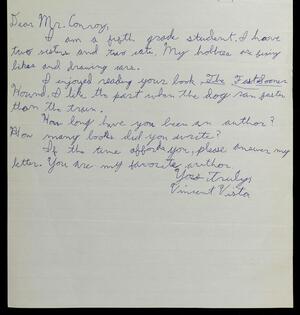 Dear Mr. Conroy,
I am a fifth grade student. I have
two sisters and two cats. My hobbies are
bikes and drawing cars.
I enjoyed reading your book The
Hound. I like the part when the dog ran faster
than the train.
How long have you been an author?
How many books did you write?
If the time affords you, please answer my
letter. You are my favorite author.
Yours truly,
Vincent Vista